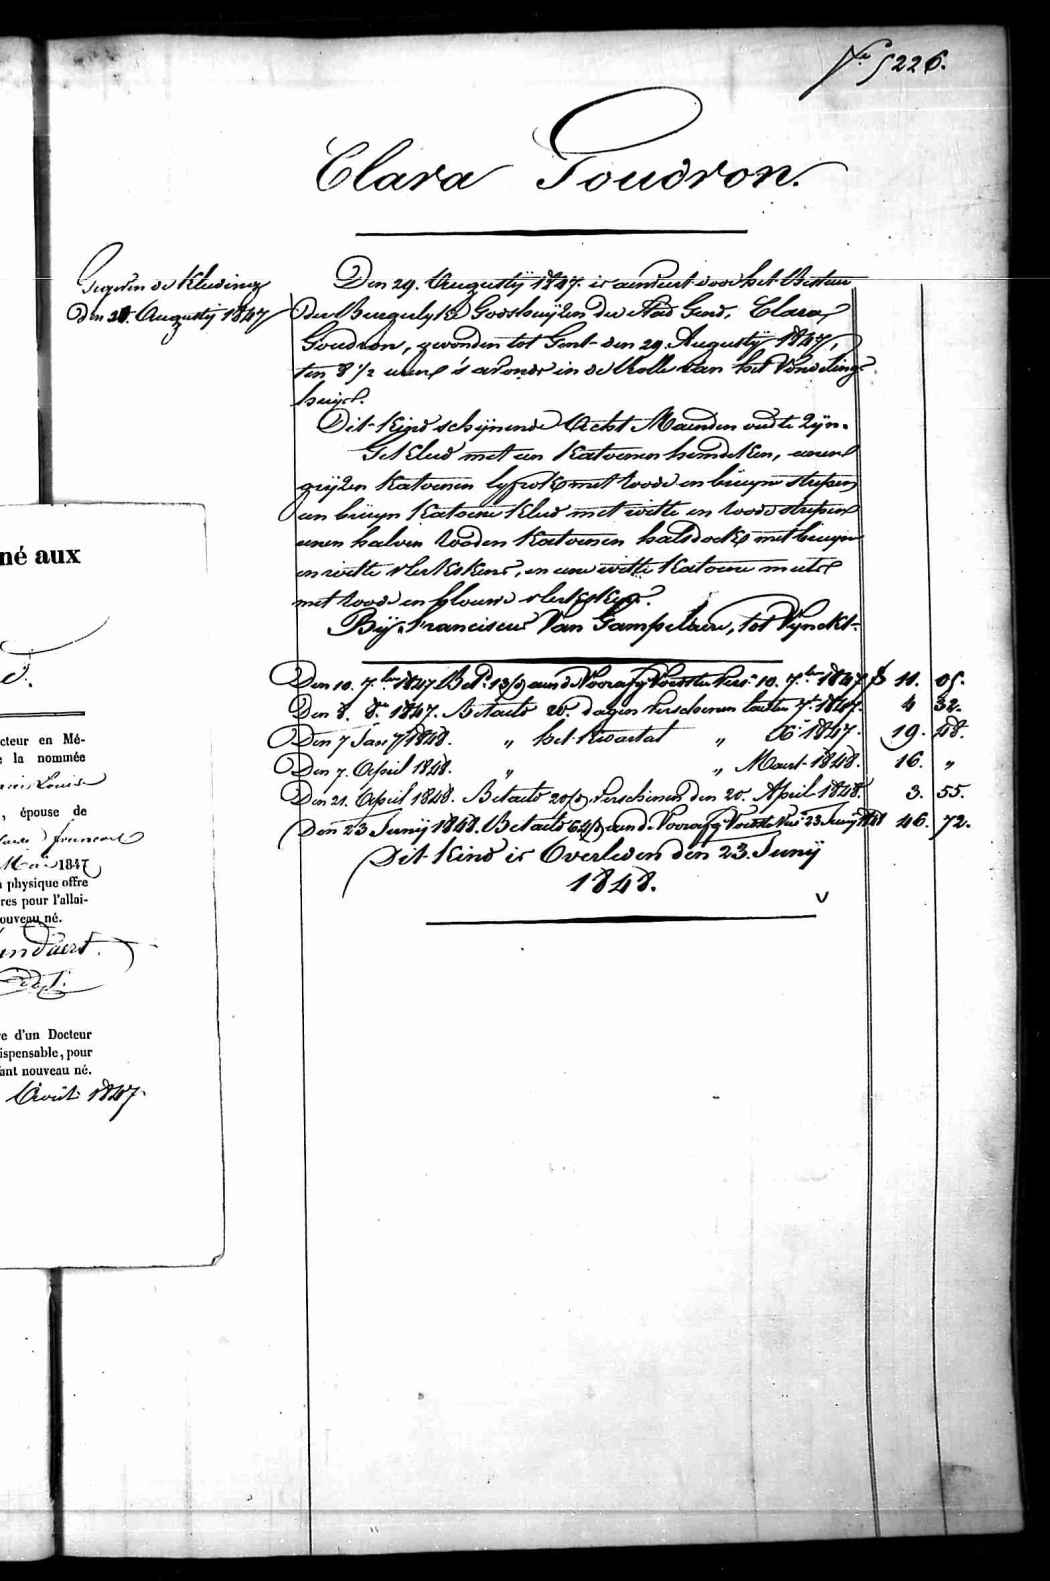 N.º 5226.
Clara Goudron.
Gegeven de Kleeding
den 31. Augustij 1847
Den 29. Augustij 1847. is aenveert door het Bestuer
der Burgerlyke Godshuyzen der Stad Gend, Clara
Goudron, gevonden tot Gent den 29 Augustij 1847,
ten 8 1/2 ueren 's avonds in de Rolle van het Vondeling-
huys.
Dit Kind schijnende Acht Maenden oud te Zijn.
Gekleed met een Katoenen hemdeken, eenen
grijzen Katoenen lyfrok met roode en bruyne strepen
een bruyn Katoene Kleed met witte en roode strepen
eenen halven rooden Katoenen halsdoek met bruyne
en witte vlekskens, en eene witte Katoene muts
met roode en blouwe vlekskens.
Bij Franciscus Van Gampelaere, tot Vynckt.
Den 10. 7.ber 1847 Bet. 13/d aen d. Voorafg. Voedster vers. 10. 7.ber 1847 fr 11. 05.
Den 8. 8.bre 1847. Betaeld 20. dagen verschenen lasten 7.br 1847. 4 32.
Den 7 Jan.y 1848. „ het Kwartael „ X.br 1847. 19. 48.
Den 7. April 1848. „ „ Maert 1848. 16. „
Den 21. April 1848. Betaeld 20/d verschenen den 20. April 1848. 3. 55.
Den 23 Junij 1848. Betaeld 64/d aen d. Voorafg. Voedster vers. 23 Junij 1848 46. 72.
Dit Kind is Overleden den 23. Junij
1848.
né aux
d.
cteur en Mé-
e la nommée
Louise
, épouse de
francois
Mai 1847
physique offre
res pour l'allai-
ouveau né.
re d'un Docteur
ispensable, pour
fant nouveau né.
Août 1847.